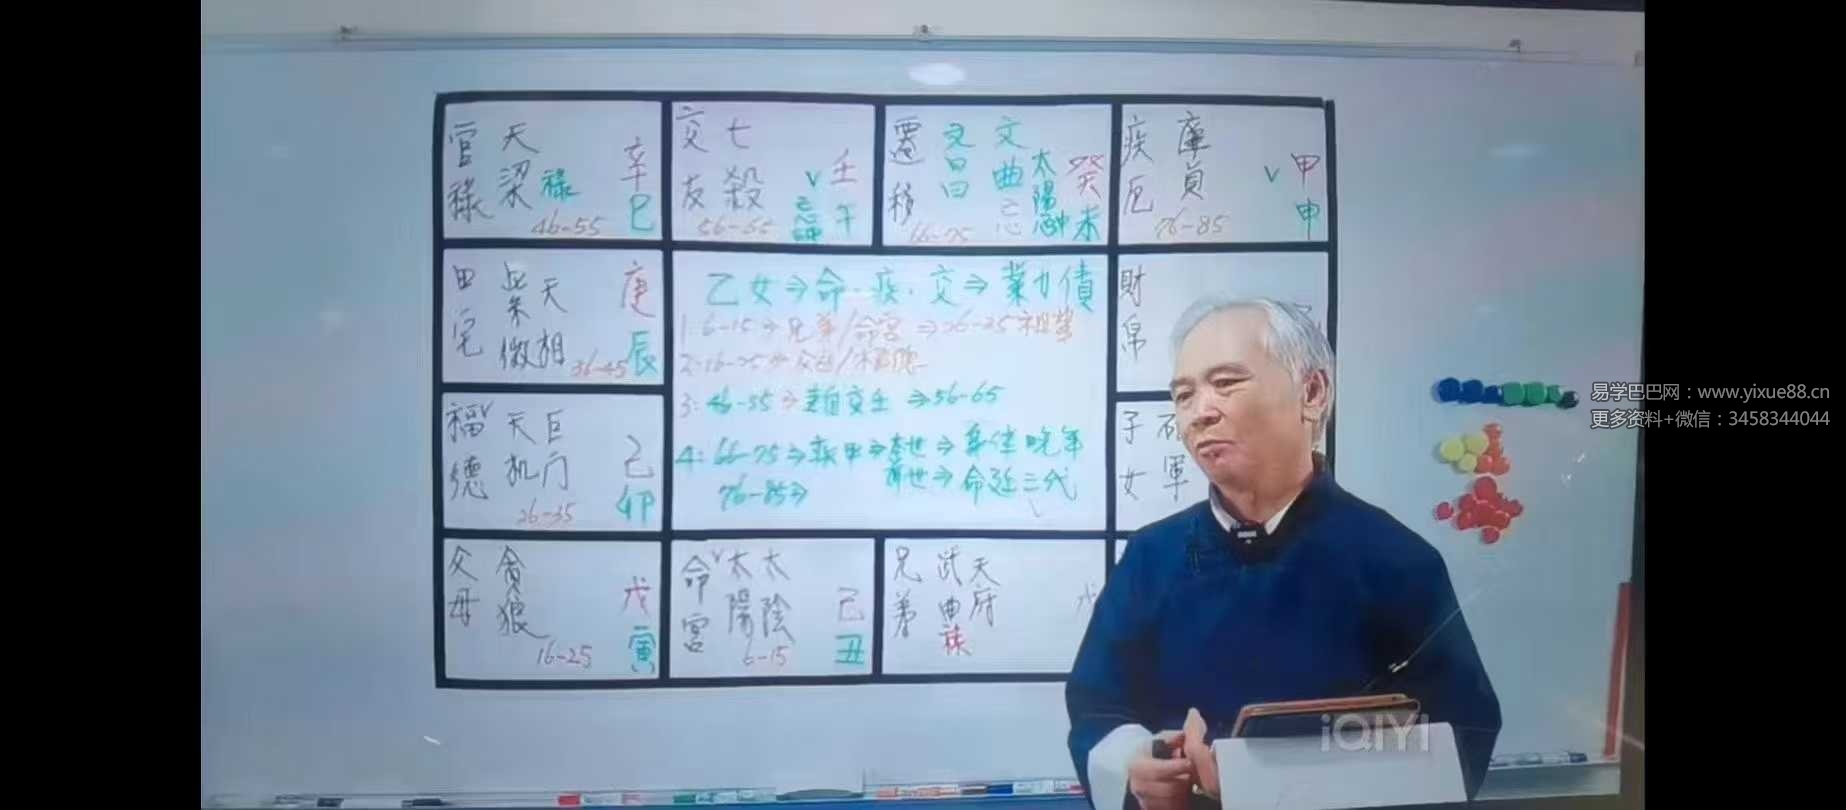 官祿 天梁 祿 辛巳
46-55
交友 七殺 壬午
56-65
遷移 文昌 文曲 忌 太陽 癸未
66-75
疾厄 廉貞 甲申
76-85
田宅 紫微 天相 庚辰
36-45
財帛
乙女⇒命.疾.交⇒業力債
1:6-15⇒兄弟/命宮⇒26-35
2:16-25⇒
3:46-55⇒ 交 ⇒56-65
4:66-75⇒ 甲⇒本世⇒ 晚年
76-85⇒ 前世⇒命 三代
福德 天机 巨门 己卯
26-35
子女 軍
父母 貪狼 戊寅
16-25
命宮 太陽 太陰 己丑
6-15
兄弟 武曲 天府 祿 戊
易学巴巴网：www.yixue88.cn
更多资料+微信：3458344044
iQIYI